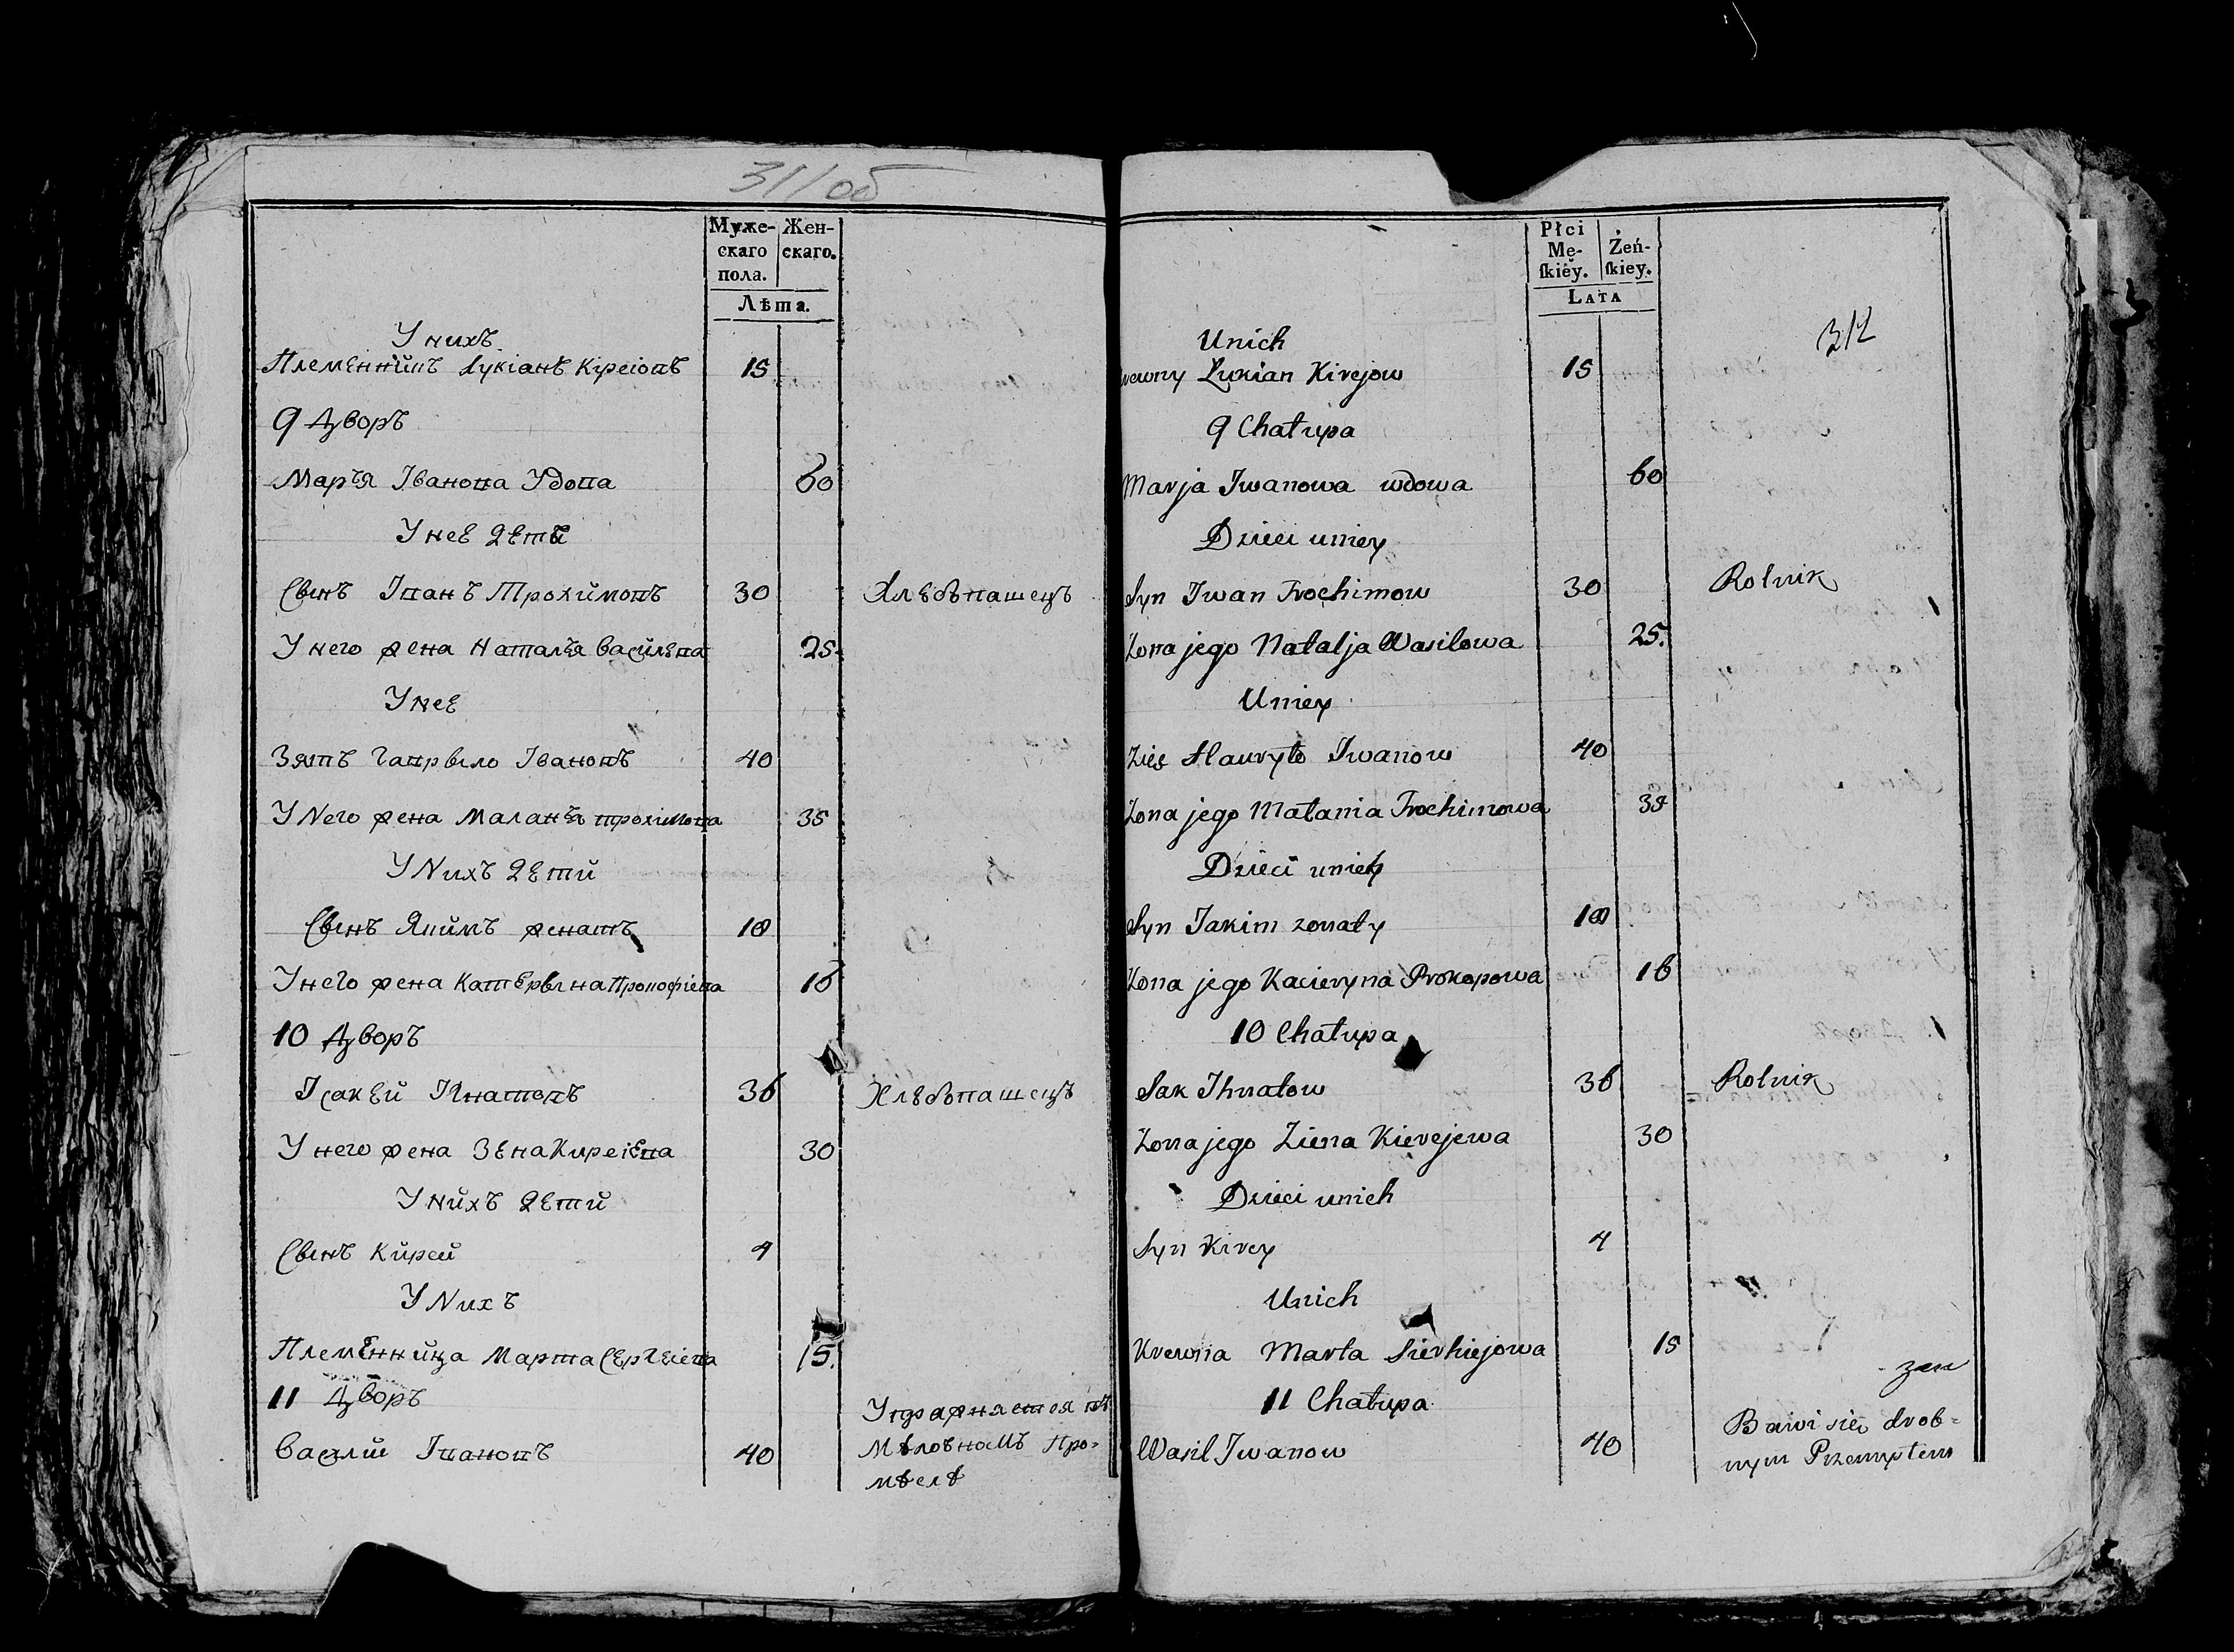 311об
Муже-скаго пола. Жен-скаго.
Лѣта.
У нихъ
Племенникъ Лукіанъ Кіреіовъ 15
9 Дворъ
Марья Іванова Удова 60
У нее дети
Сынъ Іванъ Трохимовъ 30 Хлебопашецъ
У него жена Наталья Василева 25
У нее
Зять Гаврыло Івановъ 40
У Него жена Маланья трохимова 35
У Нихъ дети
Сынъ Якимъ женатъ 18
У него жена Катерына Прокофіева 16
10 Дворъ
Ісакей Игнатовъ 36 Хлебопашецъ
У него жена Зена Киреіева 30
У нихъ дети
Сынъ Кирей 4
У Нихъ
Племенница Марта Сергеіева 15.
11 Дворъ
Василій Івановъ 40 Упражняется въ мѣлочномъ про-мѣслѣ
312
Płci Mę-skiéy. Żeń-skiey.
Lata
Unich
rewny Łukian Kirejow 15
9 Chałupa
Marja Iwanowa wdowa 60
Dzieci uniey
Syn Iwan Trochimow 30 Rolnik
Zona jego Natalja Wasilowa 25.
Uniey
Zięć Hauryło Iwanow 40
Zona jego Małania Trochimowa 35
Dzieci unich
Syn Jakim zonaty 18
Zona jego Kacieryna Prokopowa 16
10 Chałupa
Sak Ihnatow 36 Rolnik
Zona jego Ziena Kierejewa 30
Dzieci unich
Syn Kirey 4
Unich
Krewna Marta Sierhiejowa 15
11 Chałupa
Wasil Iwanow 40 Bawi się drob=nym Przemysłem